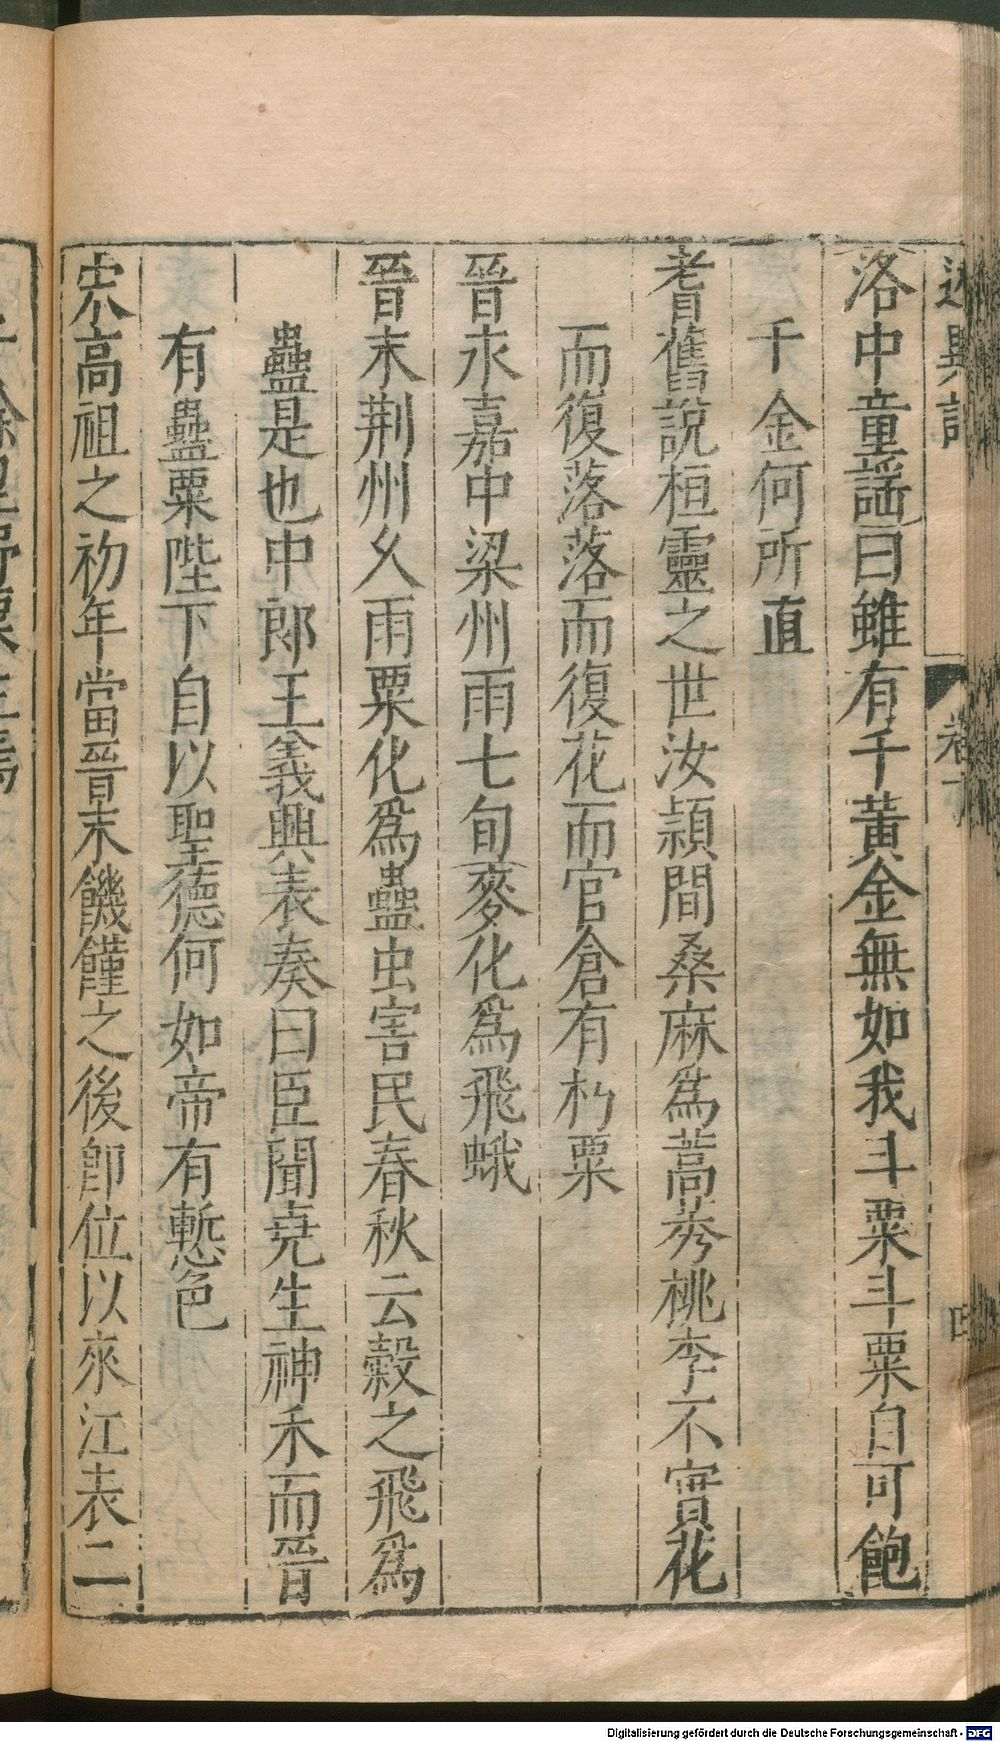 述異記
卷下
四
洛中童謡曰雖有千黃金無如我斗粟斗粟自可飽
千金何所直
耆舊說桓靈之世汝潁間桑麻爲蒿莠桃李不實花
而復落落而復花而官倉有朽粟
晉永嘉中梁州雨七旬麥化爲飛蛾
晉末荆州久雨粟化爲蠱虫害民春秋云穀之飛爲
蠱是也中郎王義興表奏曰臣聞堯生神禾而晉
有蠱粟陛下自以聖德何如帝有慙色
宋高祖之初年當晉末饑饉之後卽位以來江表二
Digitalisierung gefördert durch die Deutsche Forschungsgemeinschaft - DFG